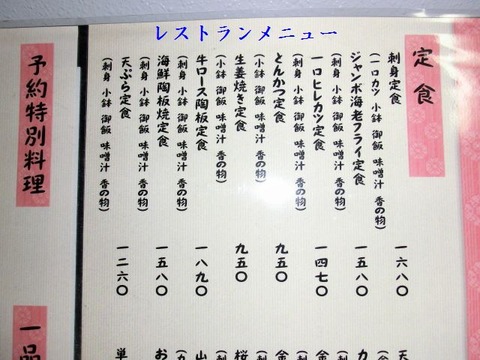 レストランメニュー
定食
刺身定食 一六八〇
(一口カツ 小鉢 御飯 味噌汁 香の物)
ジャンボ海老フライ定食 一五八〇
(刺身 小鉢 御飯 味噌汁 香の物)
一口ヒレカツ定食 一四七〇
(刺身 小鉢 御飯 味噌汁 香の物)
とんかつ定食 九五〇
(小鉢 御飯 味噌汁 香の物)
生姜焼き定食 九五〇
(小鉢 御飯 味噌汁 香の物)
牛ロース陶板定食 一八九〇
(刺身 小鉢 御飯 味噌汁 香の物)
海鮮陶板焼定食 一五八〇
(刺身 小鉢 御飯 味噌汁 香の物)
天ぷら定食 一二六〇
(刺身 小鉢 御飯 味噌汁 香の物)
予約特別料理
一品